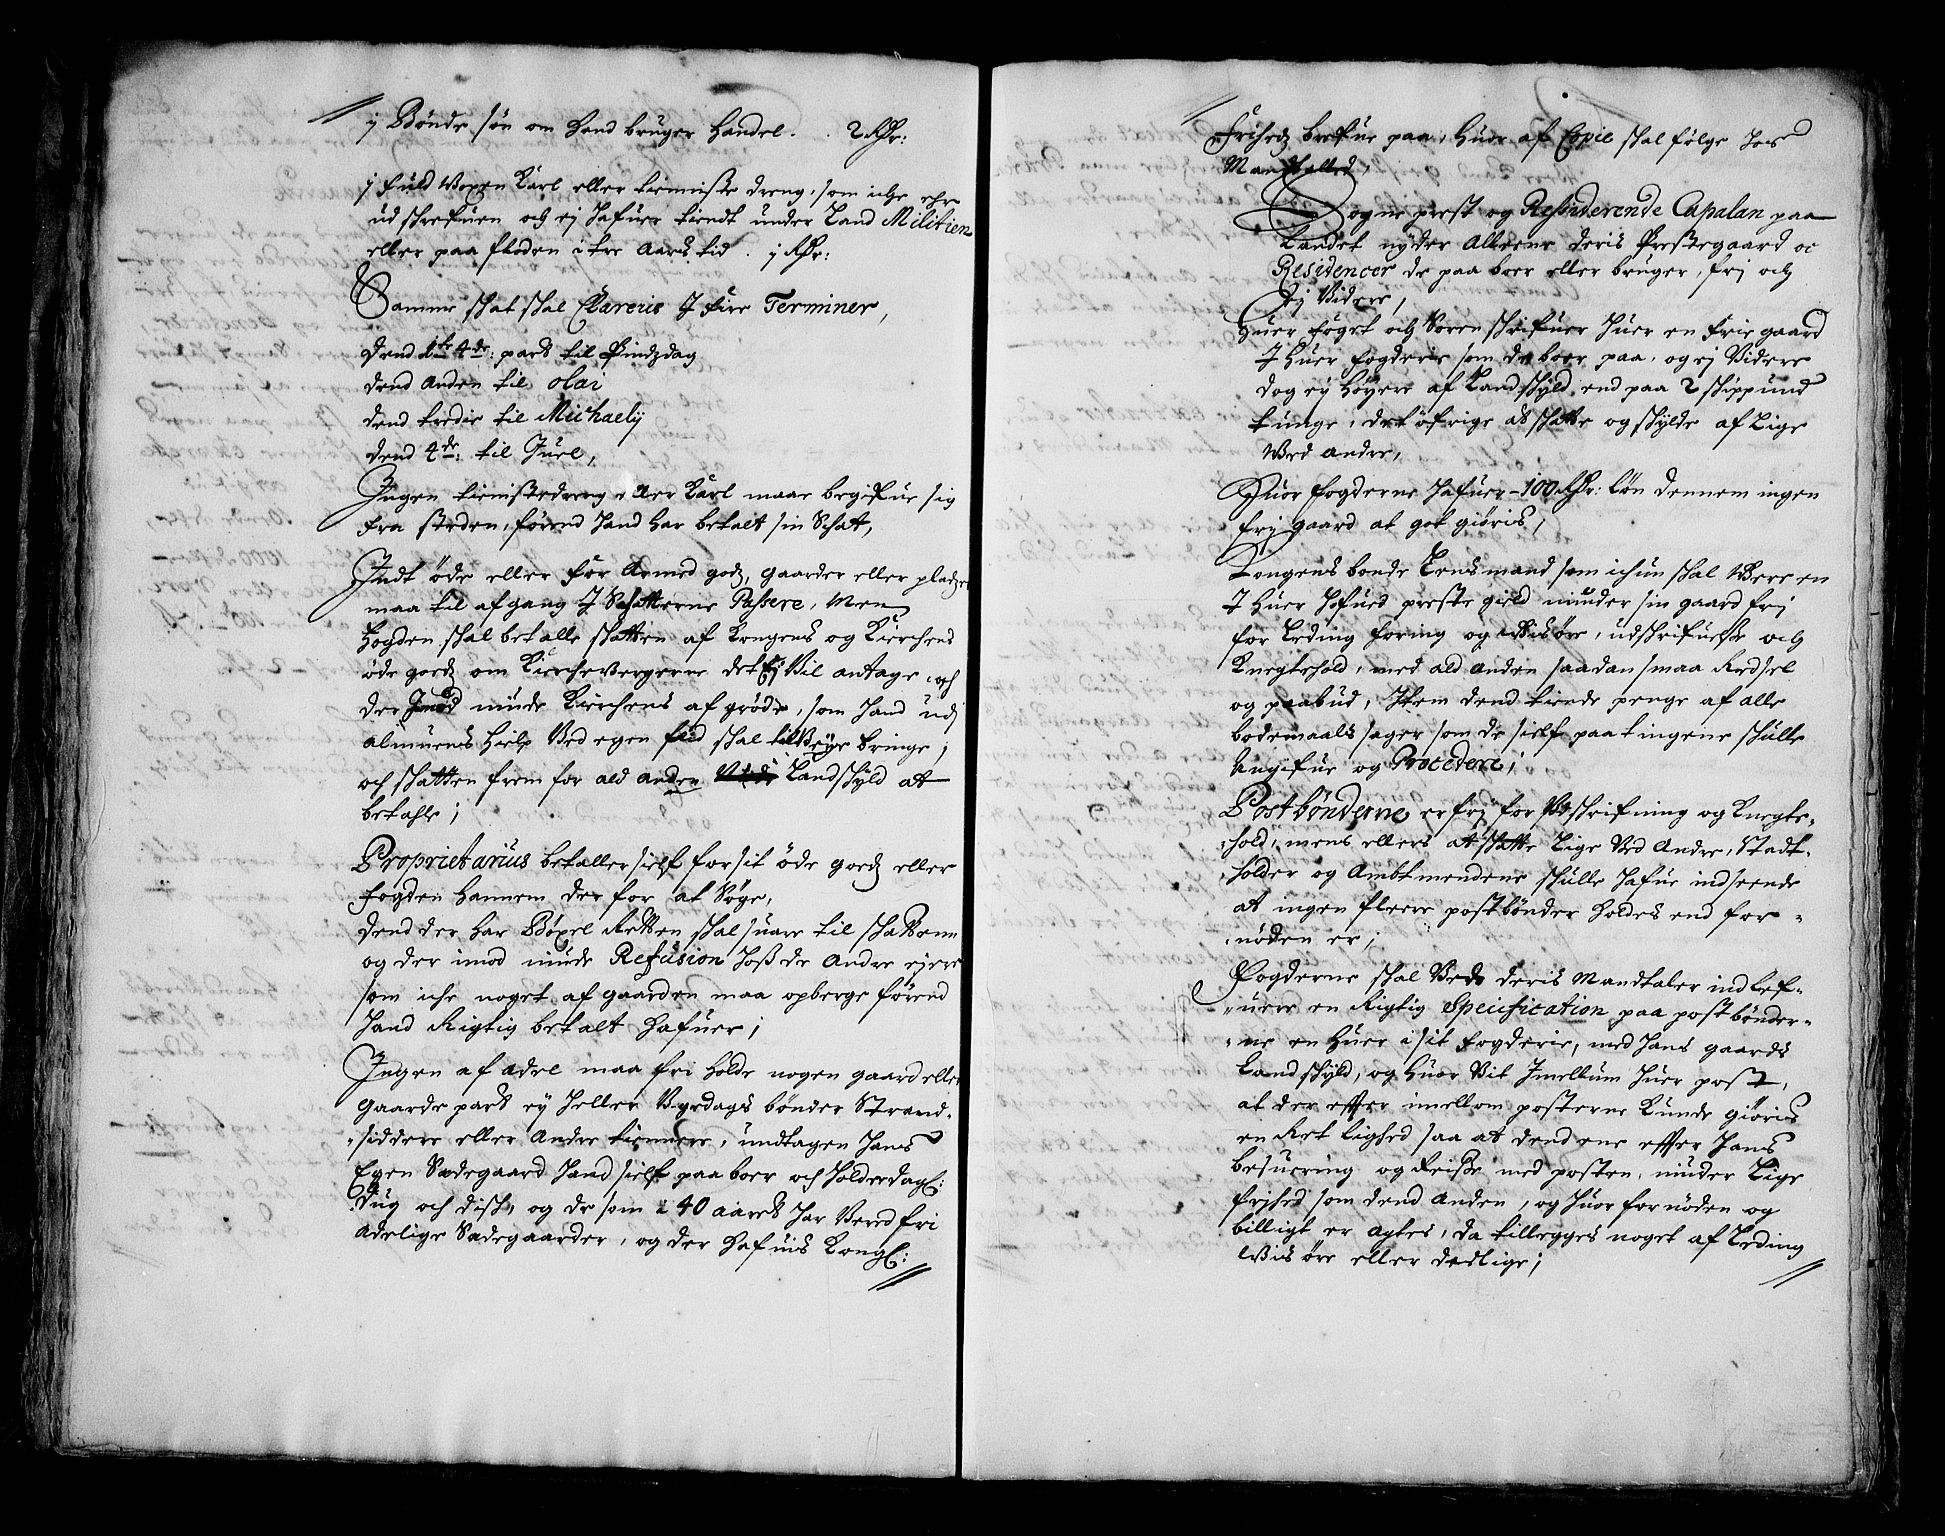 j Bønde søn om hand bruger Handel . . 2 Rdr:
j fuld Voxen Karl eller tienniste dreng, som iche ehr
udschrefuen och ej hafuer tiendt under Land Militien
eller paa floden i tre Aars tid . j Rdr:
Samme skat skal Clareris J fire Terminer,
Dend 1ste 4de: part til Pindzdag
dend anden til olai
dend tredie til Michaelij
dend 4de: til Juel,
Ingen tienistedreng eller Karl maae begifue sig
fra steden, førend hand har betalt sin Schatt,
Indt øde eller for Armed godz, gaarder eller pladzer
maa til afgang J Schatterne Passere, Men
Fogden skal betalle skatten af Kongens og Kierchens
øde goedz om Kirchevergerne det Ej Vil antage, och
der Imod niude Kierchens afgrøde, som hand udj
almuens Hielp Ved egen flid skal tilVeye bringe;
och skatten frem for ald anden Landschyld at
betahle;
Proprietarius betaller sielf for sit øde goedz eller
fogden Hannem der for at Søge,
dend der har Böxel Retten skal suare til skatterne
og der imod niude Refusion hoss de Andre ejere
som iche noget af gaarden maa opberge førend
hand Rigtig betalt hafuer;
Ingen af adel maa fri holde nogen gaard eller
gaarde part ej heller Vgedags bønder Strand-
siddere eller Andre tiennere, undtagen hans
Egen Sædegaard hand sielf paa boer och holder dagl:
dug och disk, og de som i 40 aars har Vered fri
Adelige Sædegaarder, og der hafuis Kongl:
Friheds brefue paa, huor af Copie skal følge hos
Mandtallet,
Sogne prest og Residerende Capalan paa
Landet nyder Alleene deris Prestegaard oc
Residencer de paa boer eller bruger, fri och
Ej Videre,
Huer foget och Sorenschrifuer huer en frie gaard
J Huer fogderie som de boer paa, og ej Videre
dog ej høyere af Landschyld end paa 2 skippund
tunge, det öfrige at skatte og skylde af lige
Ved andre,
Huor fogderne hafuer 100 Rdr: løn dennem ingen
frij gaard at got giøris,
Kongens bonde Lensmand som ichun skal Were en
J Huer hofued preste gield niuder sin gaard frj
for Leding foring og Wisøre, udschrifuelse och
Knegtehold, med ald anden saadan smaa Redsel
og paabud, Item dend tiende penge af alle
bødemaals sager som de sielf paa tingene skulle
Angifue og Procedere;
Postbønderne er frj for Vdschrifning og Knegte-
hold, mens ellers at skatte lige Ved Andre, Stadt-
holder og Ambtmendene skulle hafue indseende
at ingen fleere postbønder holdes end for-
nøden er;
Fogderne skal Ved deris Mandtaler indlef-
uere en Rigtig Specification paa postbønder-
ne en Huer i sit fogderie, med hans gaards
Landschyld, og huor Vit Imellum huer post,
at der effter imellom posterne Kunde giøris
en Ret lighed saa at dend ene effter hans
besuering og Reise med posten, niuder lige
frihed som dend Anden, og huor fornøden og
billigt er agtes, da tillegges noget af Leding
Visøre eller dedlige;